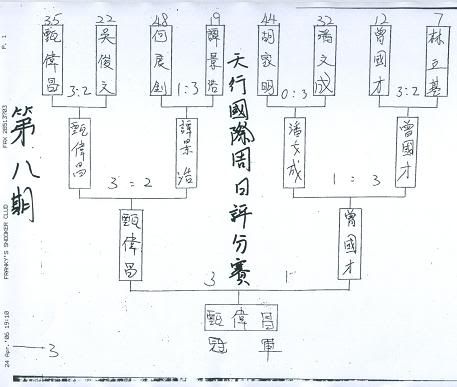 35 22 48 19 44 32 12 7
甄偉昌 吳俊文 何展釗 譚景浩 胡家明 潘文成 曾國才 林立基
3:2 1:3 0:3 3:2
甄偉昌 譚景浩 潘文成 曾國才
3:2 1:3
甄偉昌 曾國才
3 1
甄偉昌
冠軍
天行國際周日評分賽
第八期
3
24 Apr.'06 19:10 FRANKY'S SNOOKER CLUB FAX 28513703 P. 1